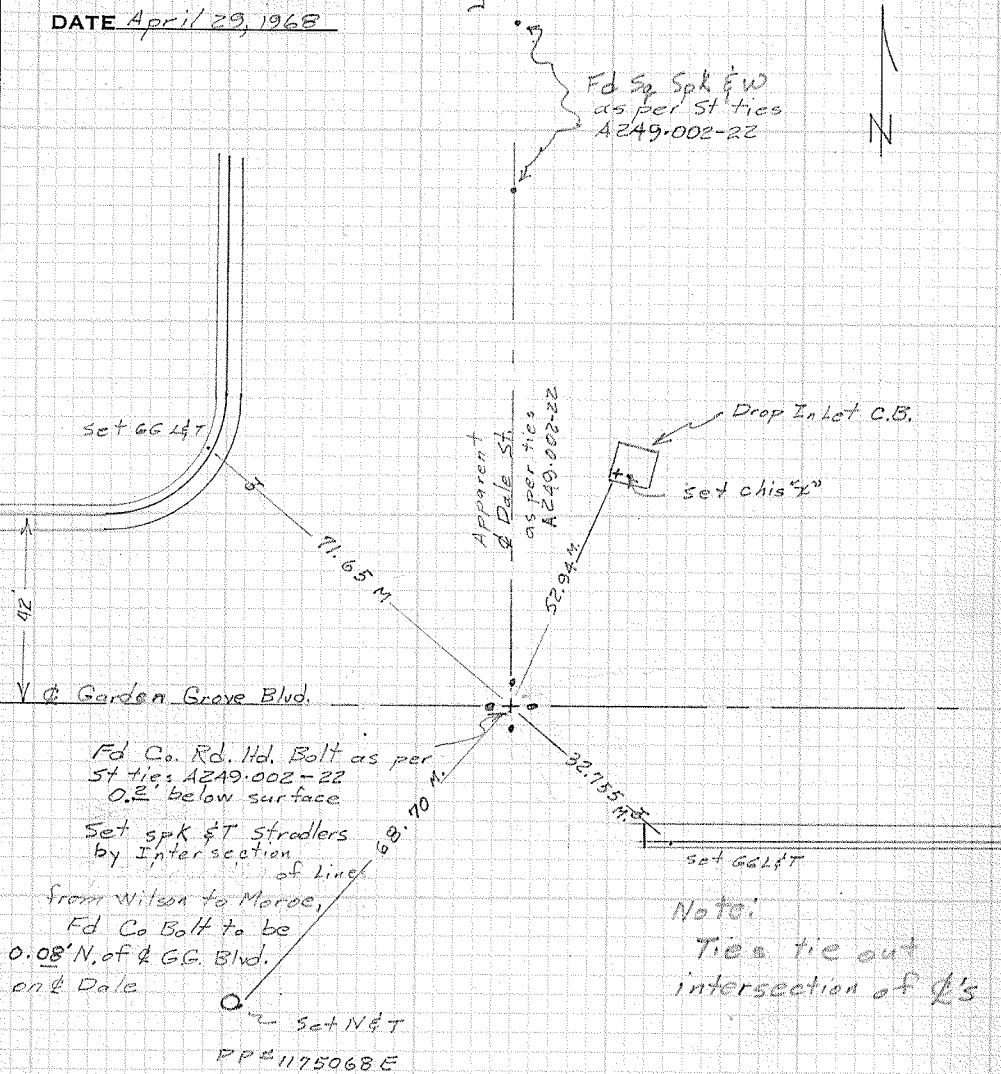 DATE April 29, 1968
Fd Sq Spk & W
as per St ties
A249.002-22
N
Set GG L&T
Apparent
℄ Dale St.
as per ties
A249.002-22
Drop Inlet C.B.
Set chis "x"
71.65 M
52.94 M.
42'
℄ Garden Grove Blvd.
Fd Co. Rd. Hd. Bolt as per
St ties A249.002-22
0.2' below surface
Set spk & T stradlers
by Intersection
of Lines
from Wilson to Moroe,
Fd Co Bolt to be
0.08' N. of ℄ G.G. Blvd.
on ℄ Dale
68.70 M.
32.755 M.
set GG L&T
Note:
Ties tie out
intersection of ℄'s
Set N & T
PP# 1175068E